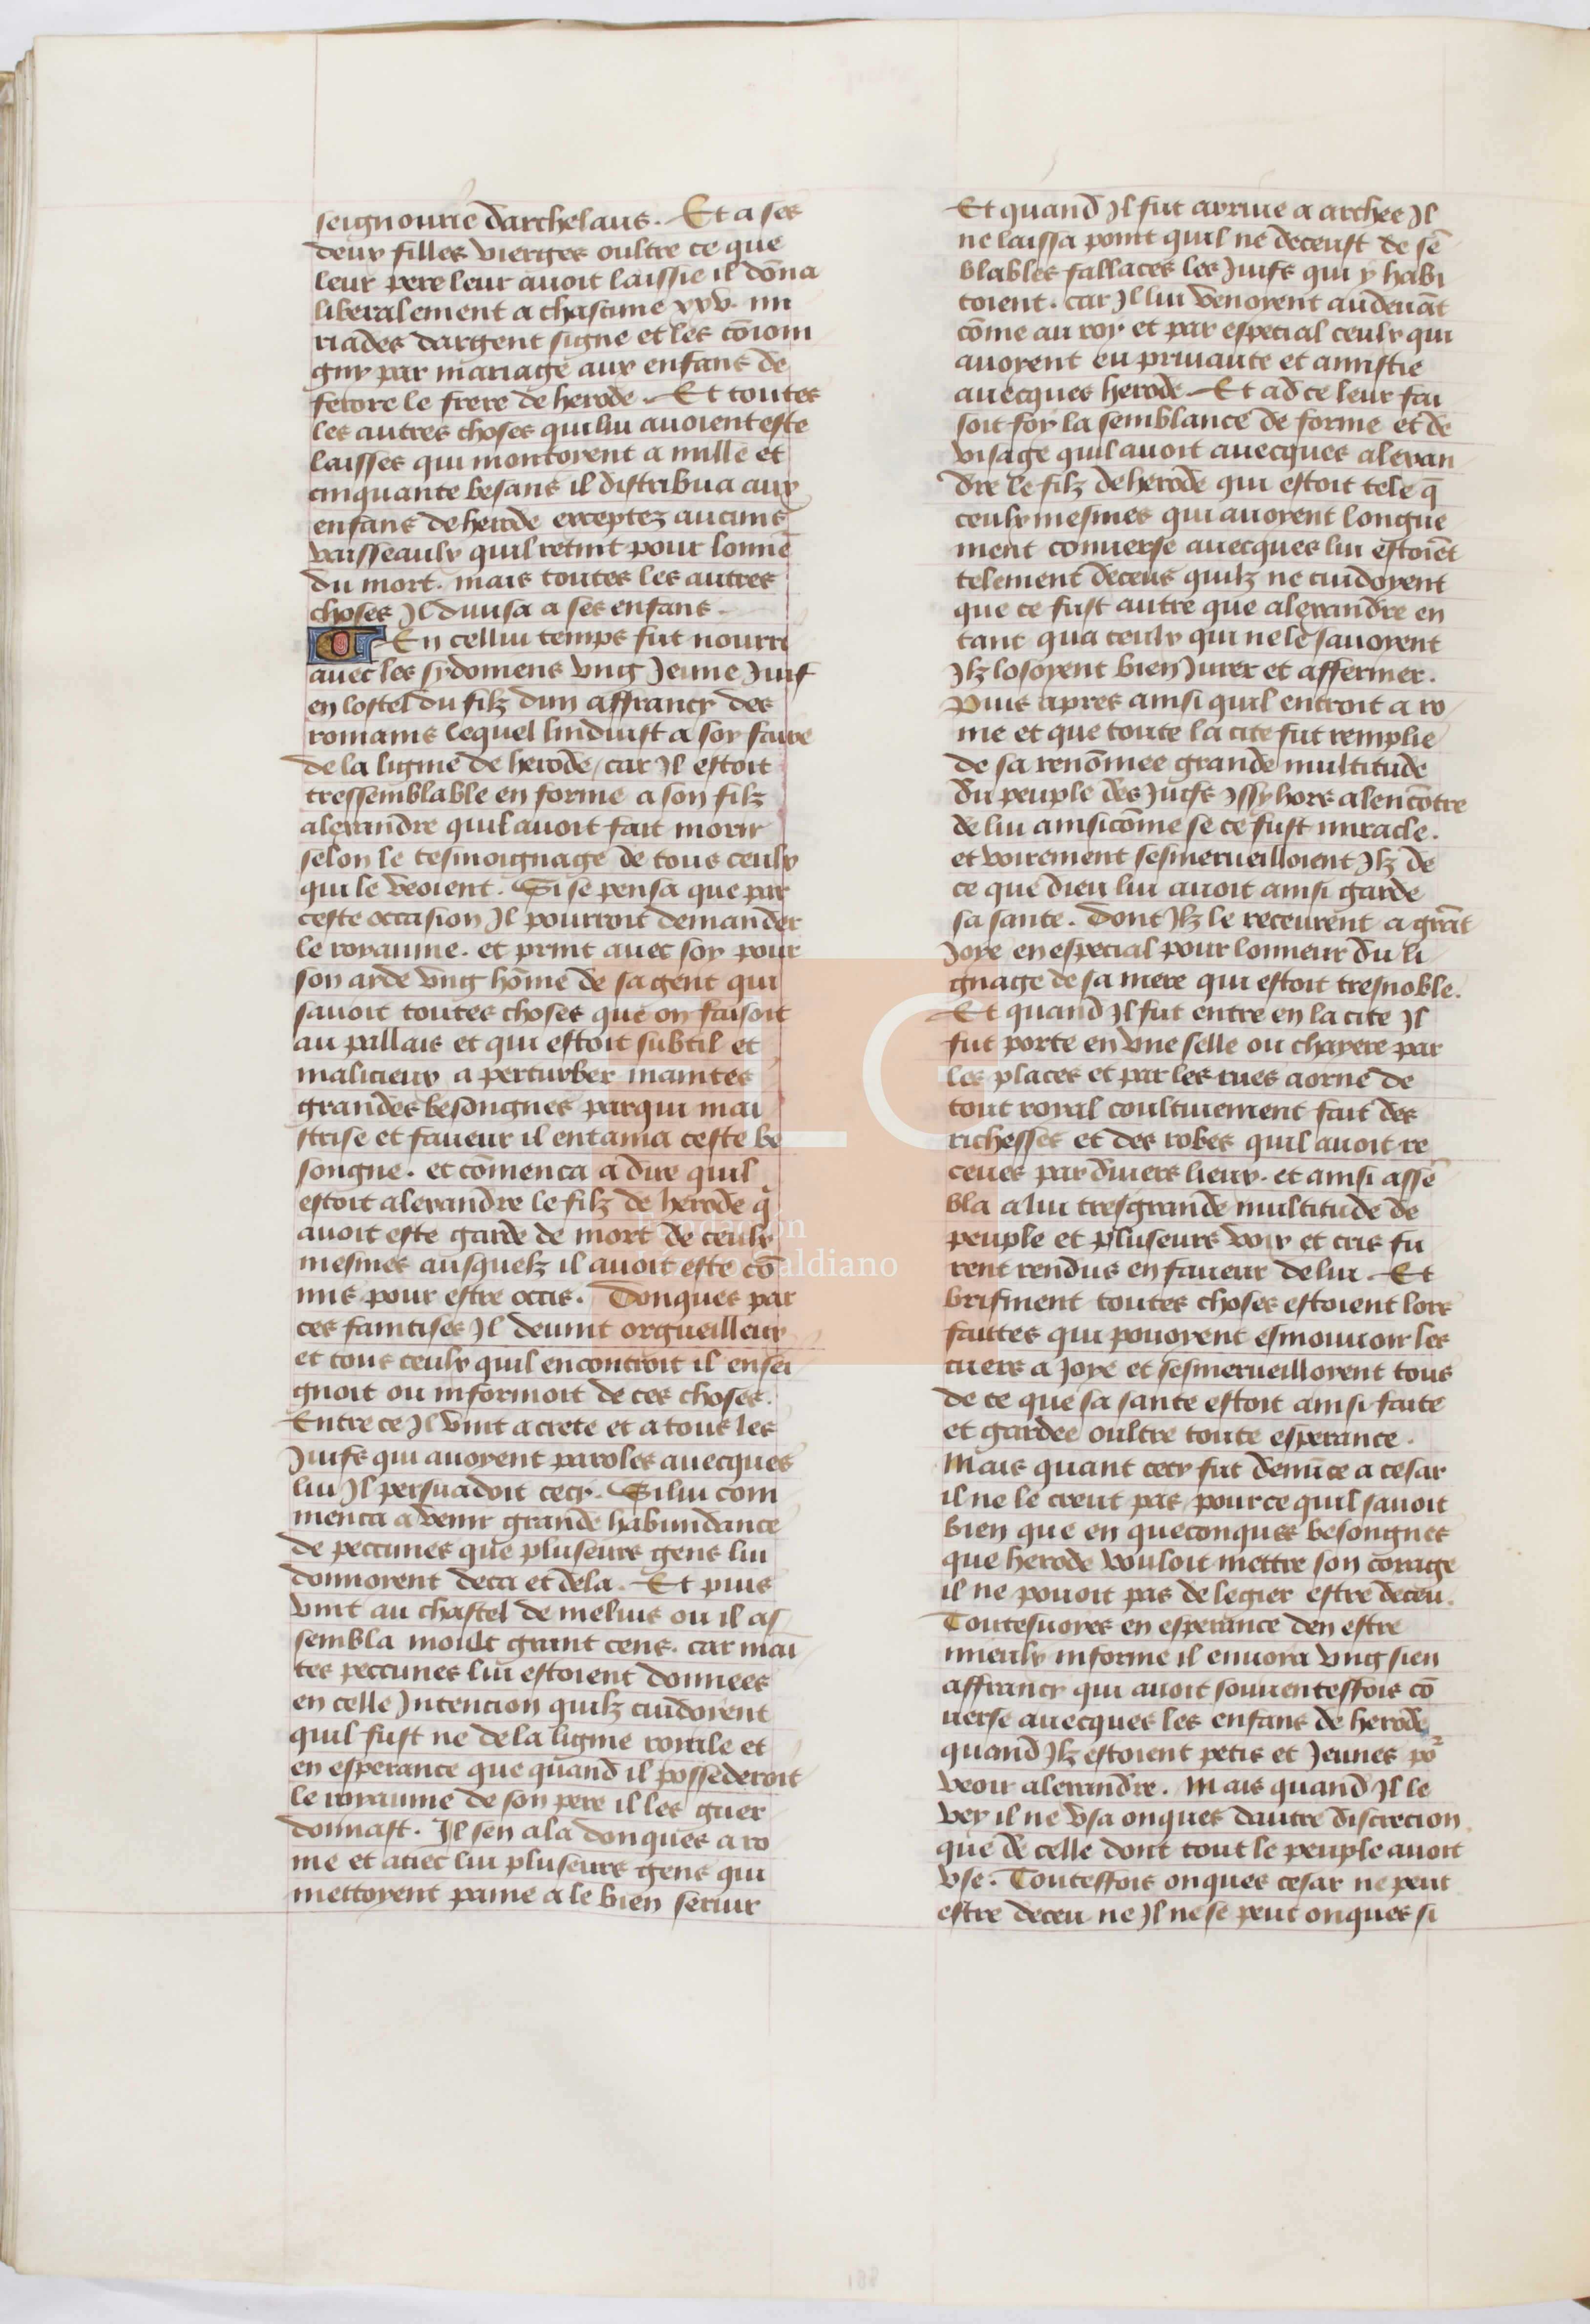 seignourie darchelaus. Et a ses
deux filles vierges oultre ce que
leur pere leur auoit laissie il dōna
liberalement a chascune xxv. mi
riades dargent signe et les cōioin
gny par mariage aux enfans de
ferore le frere de herode. Et toutes
les autres choses qui lui auoient este
laisses qui montoyent a mille et
cinquante besans il distribua aux
enfans de herode exceptez aucuns
vaisseaulx quil retint pour lonne
du mort. mais toutes les autres
choses Il diuisa a ses enfans.
En cellui temps fut nourri
auec les sydoniens vng Jeune Juif
en lostel du filz dun affrancy des
romains lequel linduist a soy faire
de la lignie de herode / car Il estoit
tressemblable en forme a son filz
alexandre quil auoit fait morir
selon le tesmoignage de tous ceulx
qui le veoient. Si se pensa que par
ceste occasion Il pourroit demander
le royaume. et print auec soy pour
son ayde vng hōme de sa gent qui
sauoit toutes choses que on faisoit
au pallais et qui estoit subtil et
malicieux a perturber maintes
grandes besongnes par qui mai
strise et faueur il entama ceste be
songne. et cōmenca a dire quil
estoit alexandre le filz de herode q̄
auoit este garde de mort de ceulx
mesmes ausquelz il auoit este cō
mis pour estre occis. Donques par
ces faintises Il deuint orgueilleux
et tous ceulx quil encontroit il ensei
gnoit ou informoit de ces choses.
Entre ce Il vint a crete et a tous les
Juifs qui auoyent paroles auecques
lui Il persuadoit cecy. Si lui com
menca a venir grande habundance
de peccunes que pluseurs gens lui
donnoyent deca et dela. Et puis
vint au chastel de melius ou il as
sembla moult graint cens. car maī
tes peccunes lui estoient donnees
en celle Intencion quilz cuidoyent
quil fust ne de la lignie roiale et
en esperance que quand il possederoit
le royaume de son pere il les guer
donnast. Il sen ala donques a ro
me et auec lui pluseurs gens qui
mettoyent paine a le bien seruir
Et quand Il fut arriue a arches Il
ne laissa point quil ne deceust de sē
blables fallaces les Juifs qui y habi
toient. car Il lui venoyent au deuāt
cōme au roy et par especial ceulx qui
auoyent eu priuaute et amistie
auecques herode. Et ad ce leur fai
soit foy la semblance de forme et de
visage quil auoit auecques alexan
dre le filz de herode qui estoit tele q̄
ceulx mesmes qui auoyent longue
ment conuerse auecques lui estoiēt
telement deceus quilz ne cuidoyent
que ce fust autre que alexandre en
tant qua ceulx qui ne le sauoyent
Ilz losoyent bien Jurer et affermer.
Puis apres ainsi quil entroit a ro
me et que toute la cite fut remplie
de sa renōmee grande multitude
du peuple des Juifs Issy hors alencōtre
de lui ainsi cōme se ce fust miracle.
et voirement sesmerueilloient Ilz de
ce que dieu lui auoit ainsi garde
sa sante. Dont Ilz le receurent a grāt
Joye en especial pour lonneur du li
gnage de sa mere qui estoit tresnoble.
Et quand Il fut entre en la cite Il
fut porte en vne selle ou chayere par
les places et par les rues aorne de
tout royal coultiuement fait des
richesses et des robes quil auoit re
ceues par diuers lieux. et ainsi assē
bla a lui tresgrande multitude de
peuple et pluseurs voix et cris fu
rent rendus en faueur de lui. Et
briefment toutes choses estoient lors
faittes qui pouoyent esmouuoir les
cuers a Joye et sesmerueilloyent tous
de ce que sa sante estoit ainsi faite
et gardee oultre toute esperance.
Mais quant cecy fut denūce a cesar
il ne le creut pas / pource quil sauoit
bien que en queconques besongnes
que herode vouloit mettre son corage
il ne pouoit pas de legier estre deceu.
Toutesuoyes en esperance den estre
mieulx informe il enuoya vng sien
affrancy qui auoit souuenteffois cō
uerse auecques les enfans de herode
quand Ilz estoient petis et Jeunes por
veoir alexandre. Mais quand Il le
vey il ne vsa onques dautre discrecion
que de celle dont tout le peuple auoit
vse. Touteffois onques cesar ne peut
estre deceu ne Il ne se peut onques si
Fundación
Lázaro Galdiano